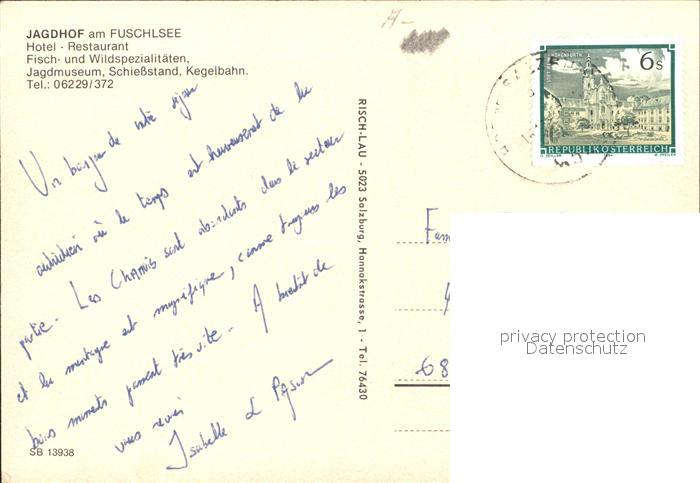 JAGDHOF am FUSCHLSEE
Hotel - Restaurant
Fisch- und Wildspezialitäten,
Jagdmuseum, Schießstand, Kegelbahn.
Tel.: 06229/372
A-
Un de
où le temps est heureusement de la
partie. Les CHAMOIS sont abondants dans le secteur
et la montagne est magnifique, comme toujours les
bons moments passent très vite. A bientôt de
vous revoir
Isabelle
SB 13938
RISCH-LAU - 5023 Salzburg, Hannakstrasse, 1 - Tel. 76430
6s
REPUBLIK ÖSTERREICH
Fam
68
privacy protection
Datenschutz